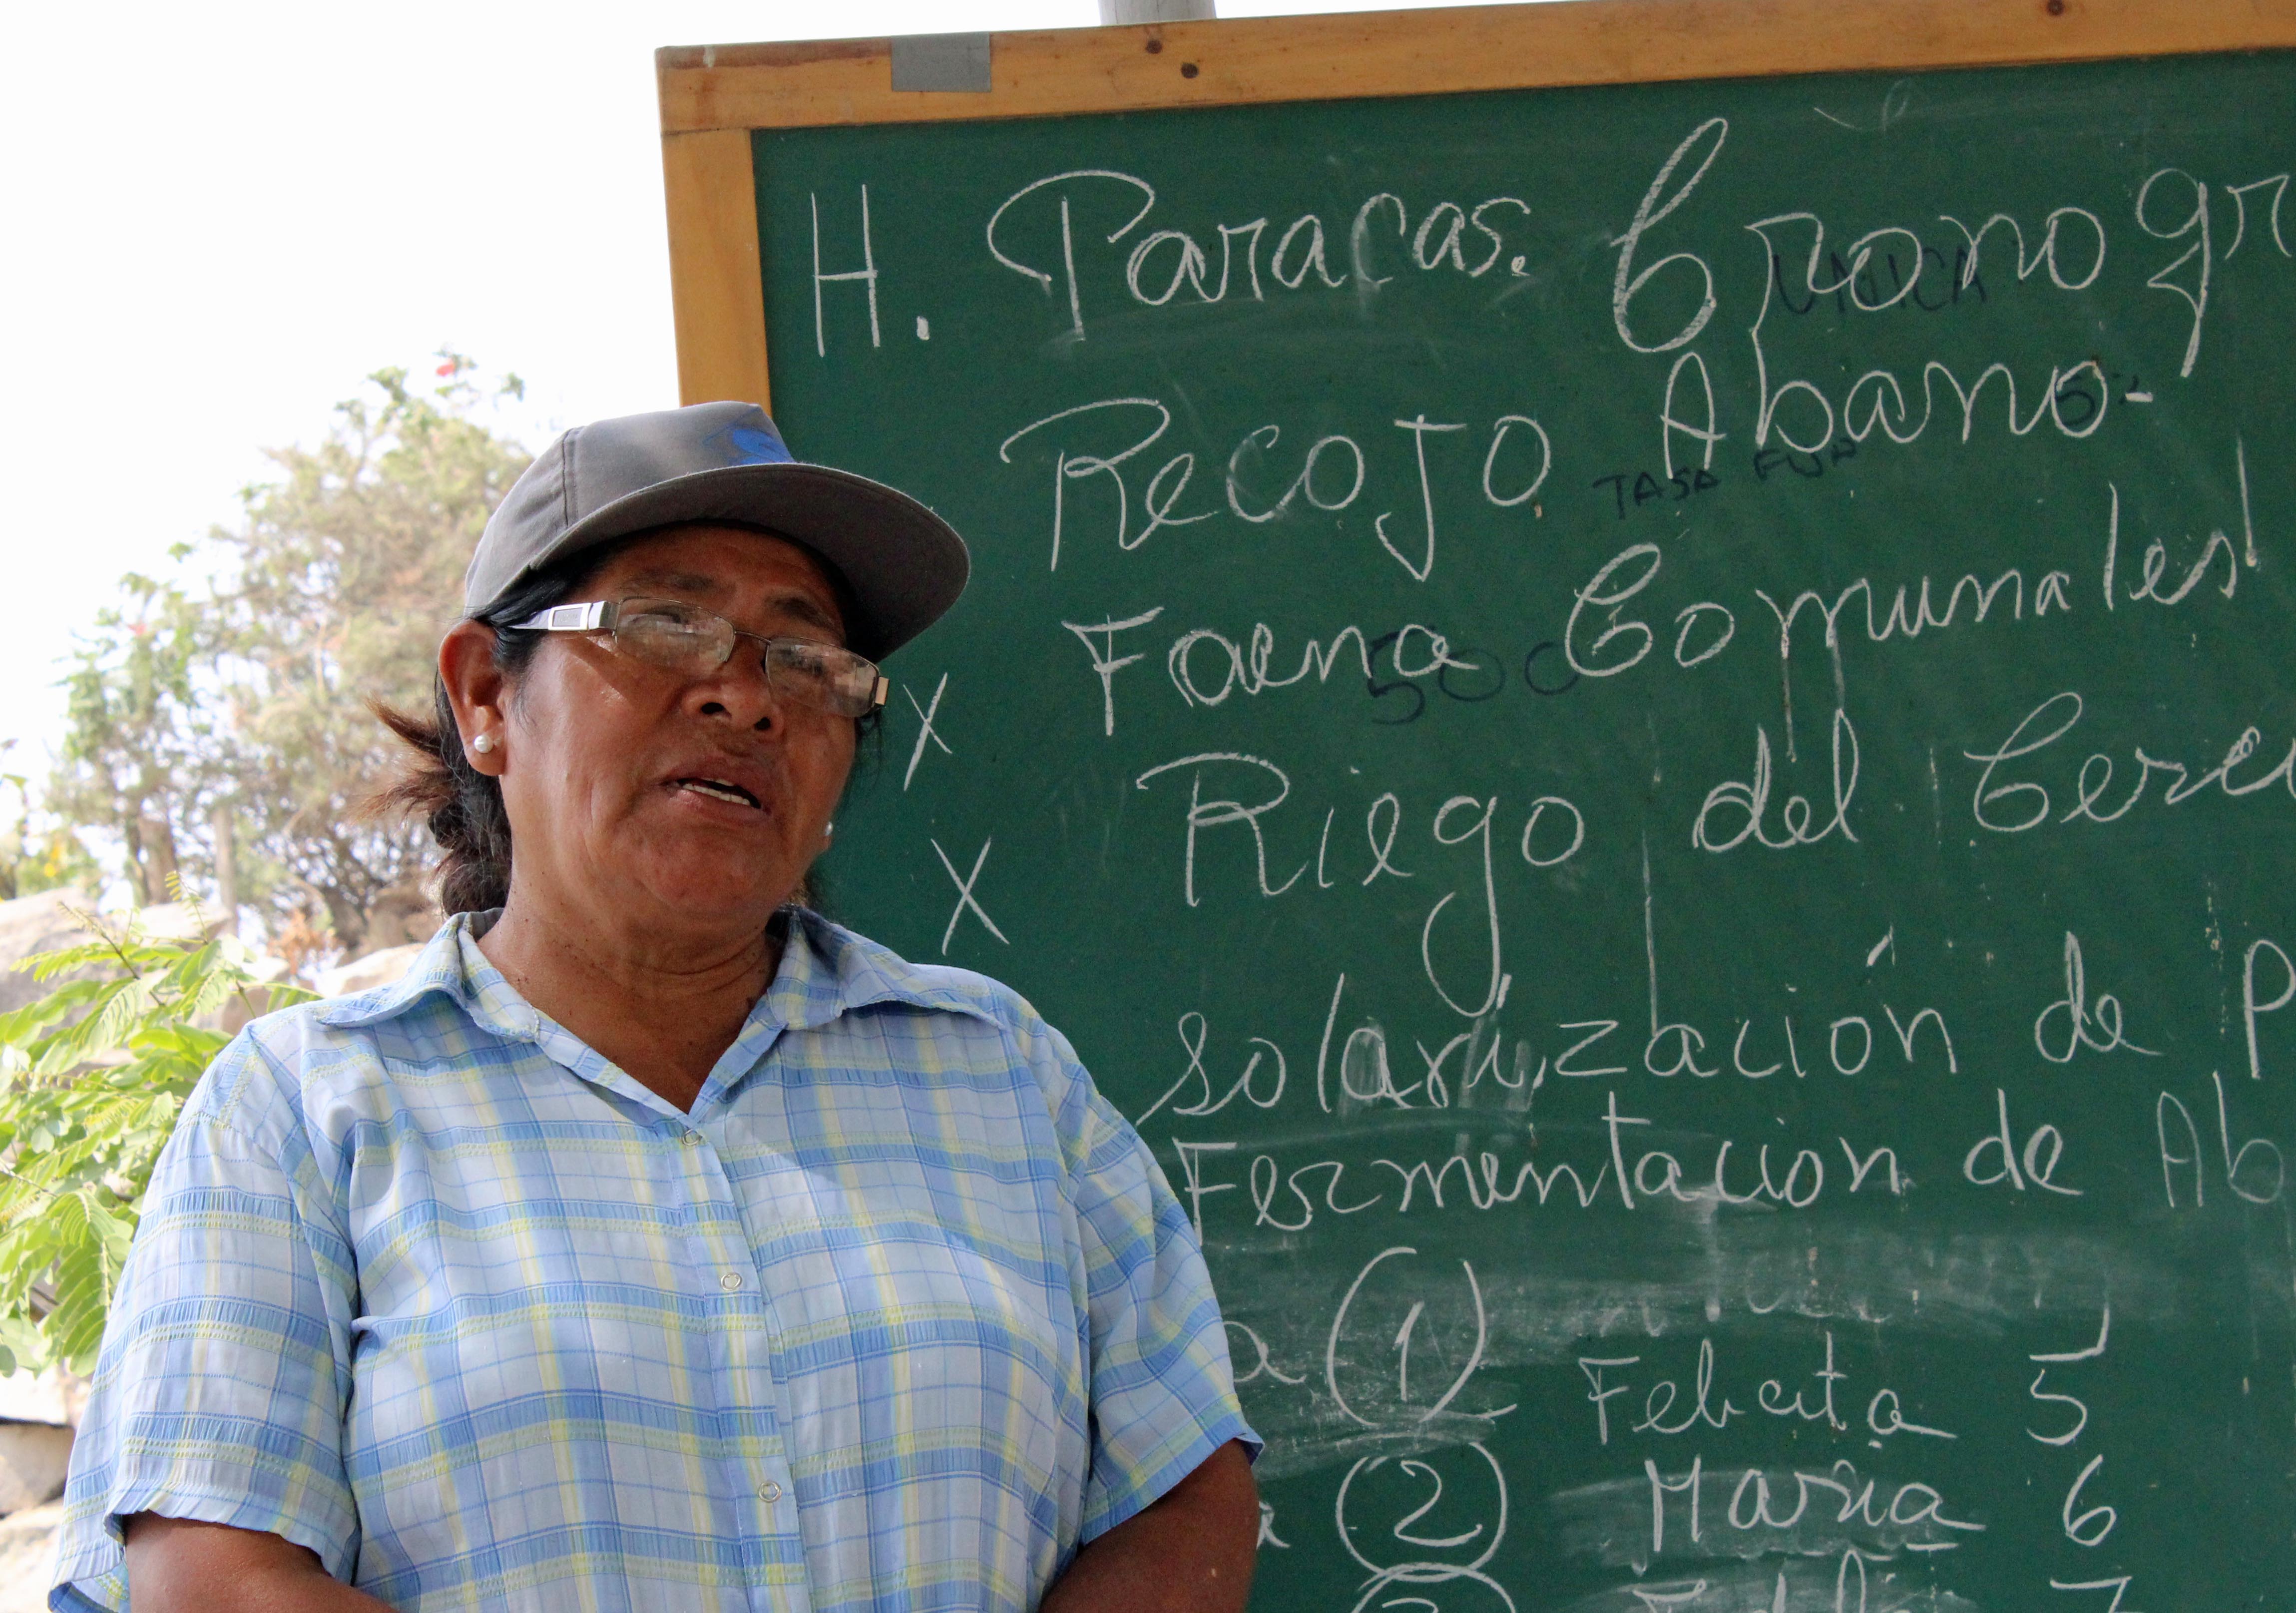 H. Paracas. Cronogr
UNICA
Recojo Abano.-
5
TASA FUN
Faena Comunales
500
X
Riego del Cerc
X
solarización de P
Fermentación de Ab
a (1) Felicita 5
a (2) María 6
7